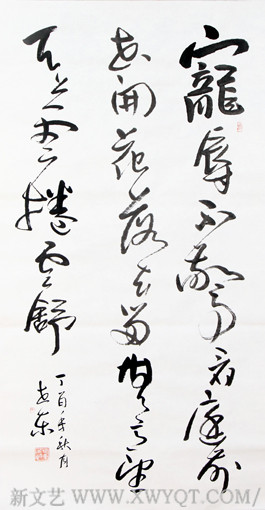 寵辱不驚看庭前
花開花落去留無意望
天上雲捲云舒
丁酉年秋月
新文艺 / WWW.XWYQT.COM/